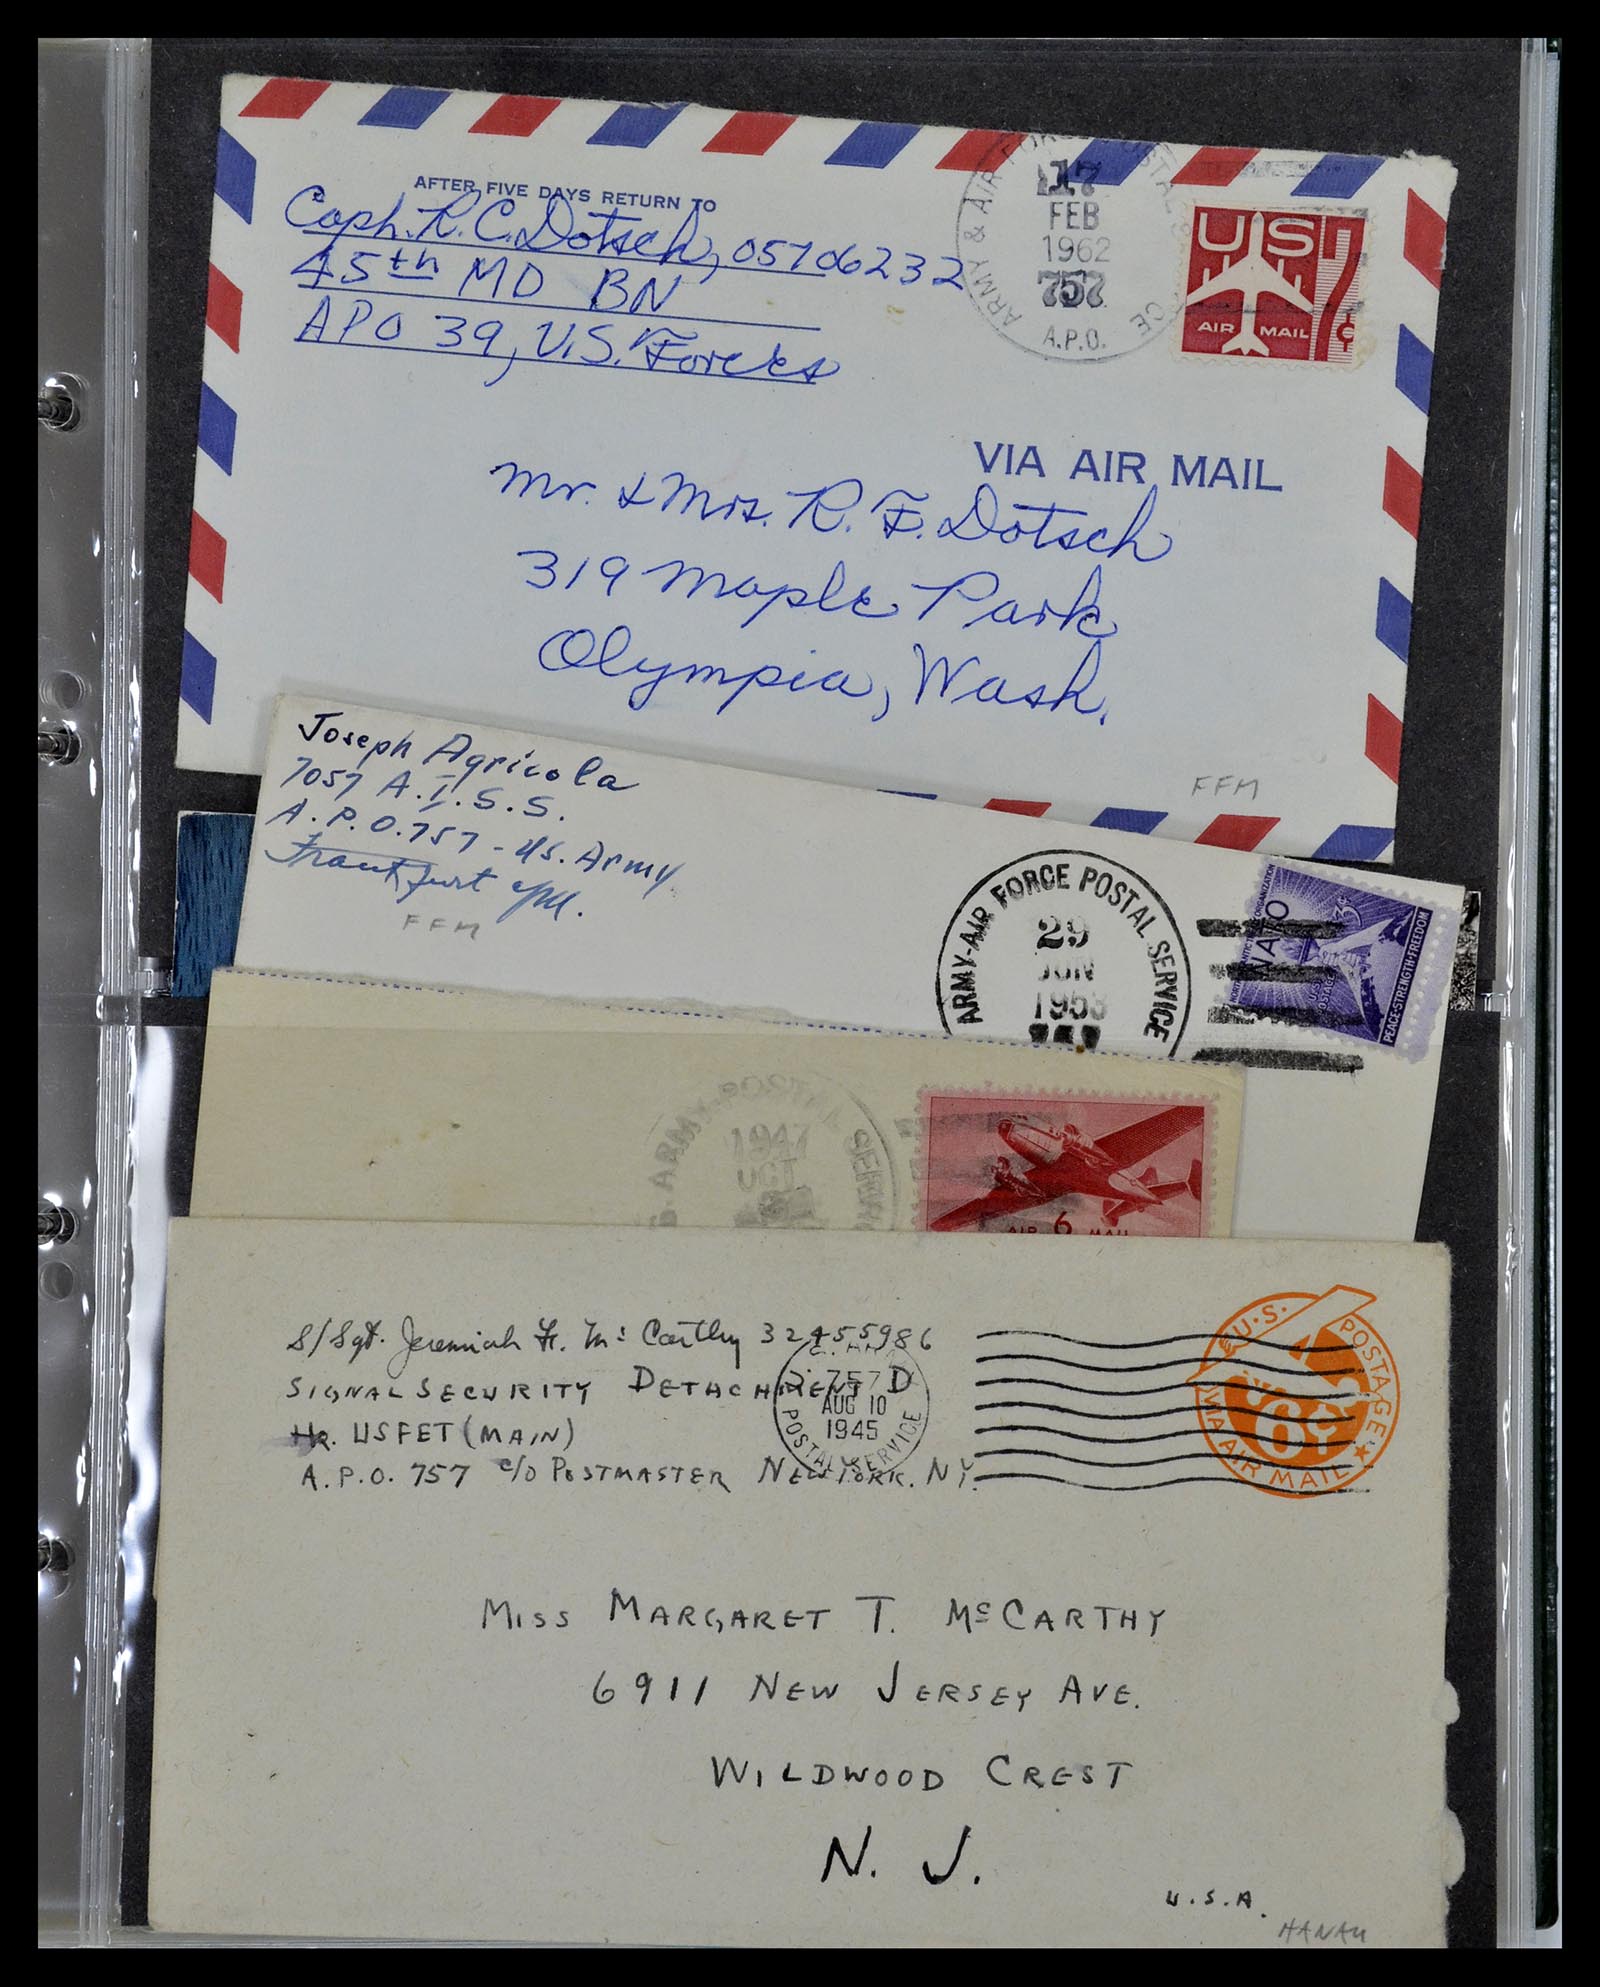 AFTER FIVE DAYS RETURN TO
Capt. R. C. Dotsch, 05706232
45th MD BN
APO 39, U.S. Forces
ARMY & AIR FORCE POSTAL SERVICE
17
FEB
1962
757
A.P.O.
US
7¢
AIR MAIL
VIA AIR MAIL
Mr. & Mrs. R. F. Dotsch
319 Maple Park
Olympia, Wash.
FFM
Joseph Agricola
7057 A.I.S.S.
A.P.O. 757 - US. Army
Frankfurt a/M.
FFM
ARMY-AIR FORCE POSTAL SERVICE
29
JUN
1953
NATO
3¢
U.S. POSTAGE
PEACE-STRENGTH-FREEDOM
ARMY POSTAL SERV
1947
OCT
AIR 6 MAIL
S/Sgt. Jeremiah H. McCarthy 32455986
SIGNAL SECURITY DETACHMENT D
HQ. USFET (MAIN)
A.P.O. 757 c/o POSTMASTER NEW YORK. NY.
757
AUG 10
1945
POSTAL SERVICE
U.S. POSTAGE
6¢
VIA AIR MAIL
MISS MARGARET T. McCARTHY
6911 NEW JERSEY AVE.
WILDWOOD CREST
N. J.
U.S.A.
HANAU